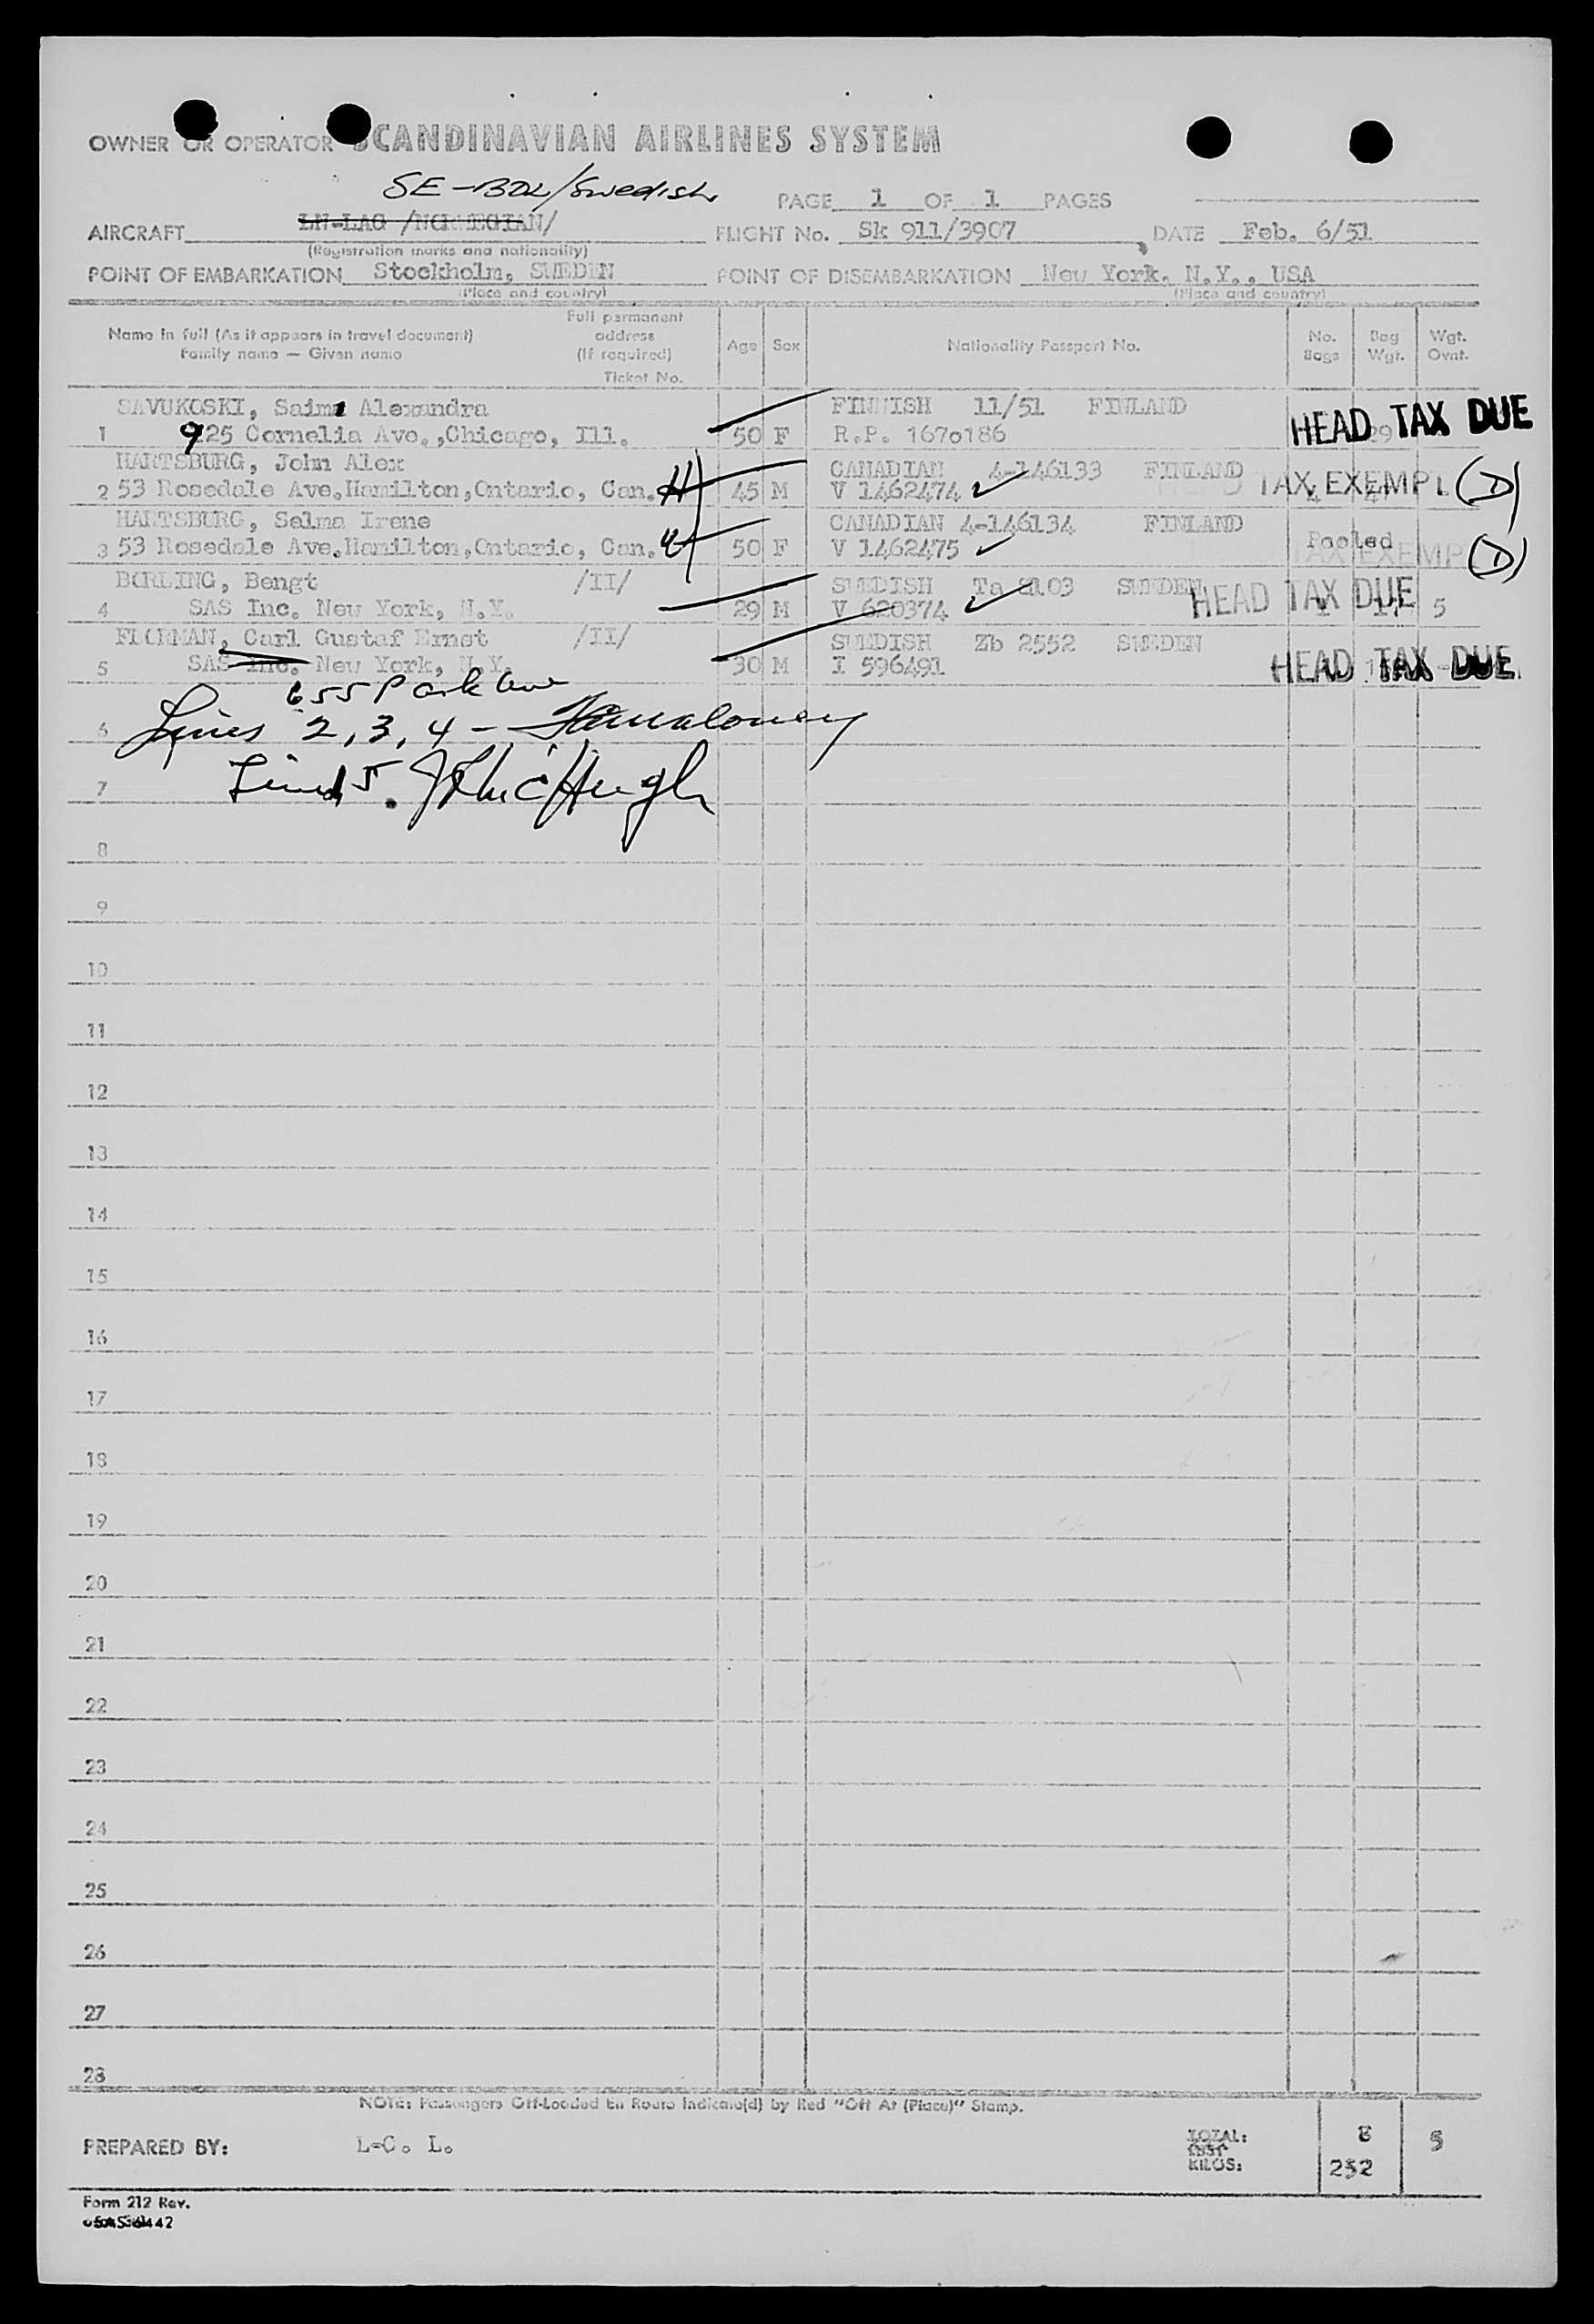 OWNER OR OPERATOR SCANDINAVIAN AIRLINES SYSTEM
SE-BDL/Swedish
PAGE 1 OF 1 PAGES
AIRCRAFT LN-LAG /NORWEGIAN/ FLIGHT No. Sk 911/3907 DATE Feb. 6/51
(Registration marks and nationality)
POINT OF EMBARKATION Stockholm, SWEDEN POINT OF DISEMBARKATION New York, N.Y., USA
(Place and country) (Place and country)
Name in full (As it appears in travel document)
Family name — Given name
Full permanent
address
(If required)
Ticket No.
Age Sex Nationality Passport No. No. Bags Bag Wgt. Wgt. Ovnt.
SAVUKOSKI, Saima Alexandra FINNISH 11/51 FINLAND
1 925 Cornelia Ave.,Chicago, Ill. 50 F R.P. 167o186 29
HEAD TAX DUE
HARTSBURG, John Alex CANADIAN 4-146133 FINLAND
2 53 Rosedale Ave,Hamilton,Ontario, Can. H 45 M V 1462474
TAX EXEMPT (D)
HARTSBURG, Selma Irene CANADIAN 4-146134 FINLAND
3 53 Rosedale Ave.Hamilton,Ontario, Can. 50 F V 1462475 Pooled
TAX EXEMP (D)
BORLING, Bengt /II/ SWEDISH Ta 8103 SWEDEN
4 SAS Inc. New York, N.Y. 29 M V 620374 1 17 5
HEAD TAX DUE
FLORMAN, Carl Gustaf Ernst /II/ SWEDISH Zb 2552 SWEDEN
5 SAS Inc. New York, N.Y. 30 M I 596491
HEAD TAX DUE
655 Park Ave
6 Lines 2, 3, 4 -
7 Line 5. J McHugh
8
9
10
11
12
13
14
15
16
17
18
19
20
21
22
23
24
25
26
27
28
NOTE: Passengers Off-Loaded En Route Indicate(d) by Red "Off At (Place)" Stamp.
PREPARED BY: L-C. L.
TOTAL: 8 5
KILOS: 252
Form 212 Rev.